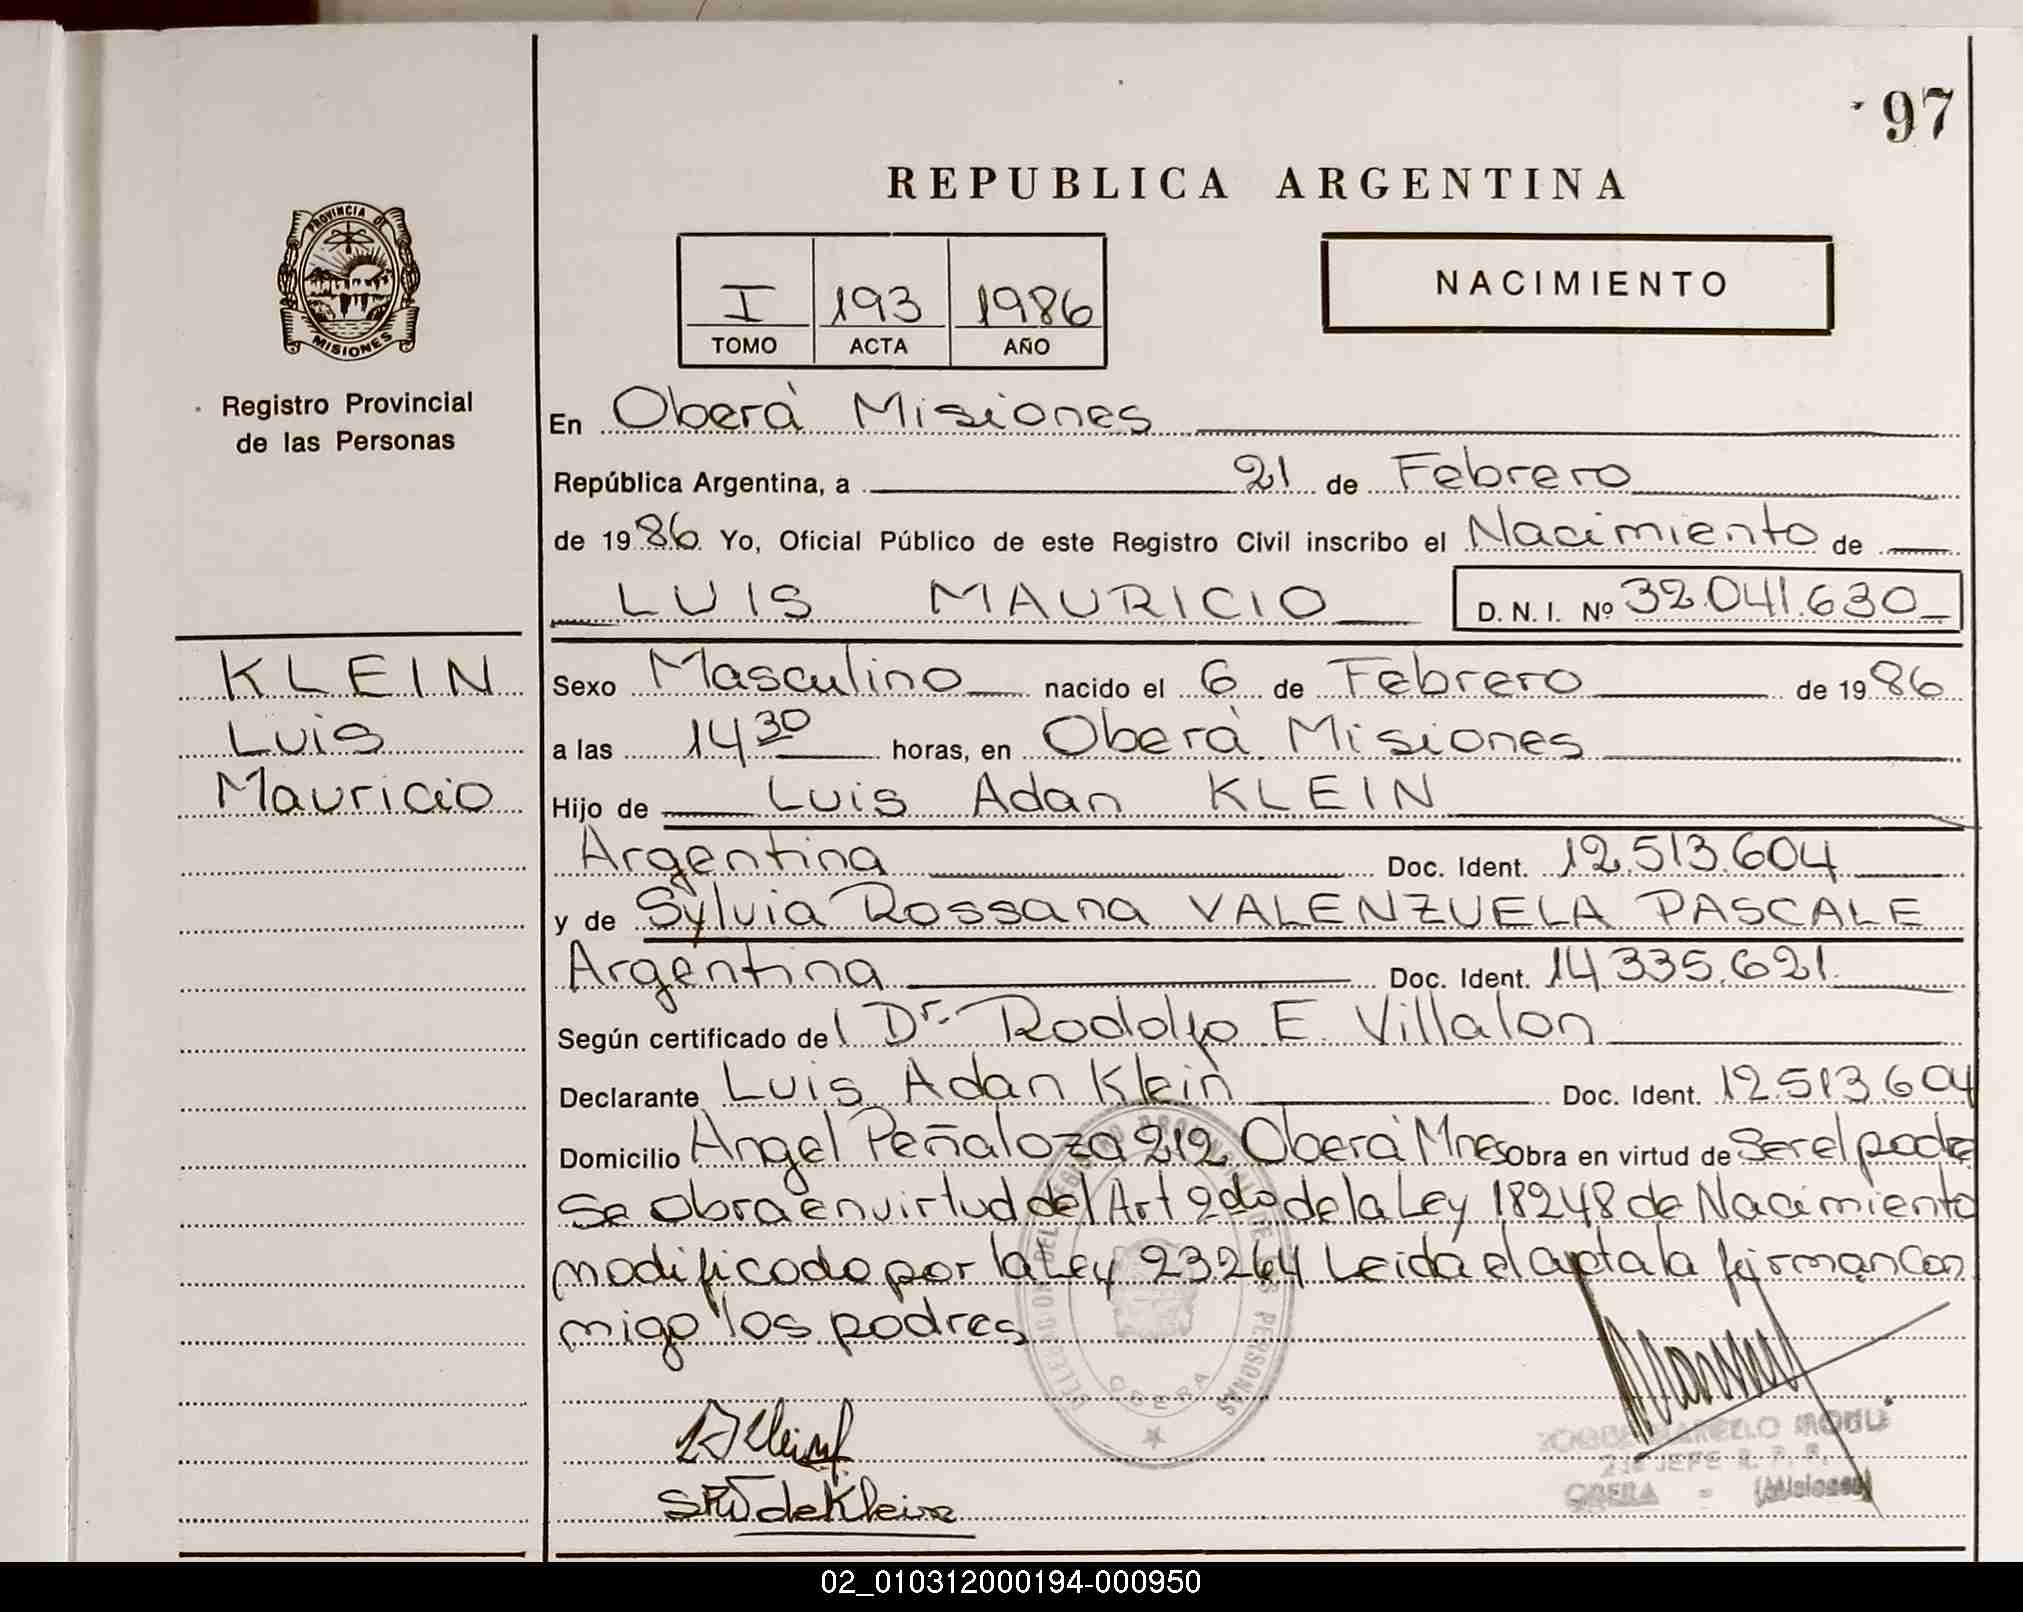 97
REPUBLICA ARGENTINA
PROVINCIA DE
MISIONES
Registro Provincial
de las Personas
I 193 1986
TOMO ACTA AÑO
NACIMIENTO
En Oberá Misiones
República Argentina, a 21 de Febrero
de 1986 Yo, Oficial Público de este Registro Civil inscribo el Nacimiento de
LUIS MAURICIO D. N. I. Nº 32.041.630
KLEIN
Luis
Mauricio
Sexo Masculino nacido el 6 de Febrero de 1986
a las 14 30 horas, en Oberá Misiones
Hijo de Luis Adan KLEIN
Argentina Doc. Ident. 12.513.604
y de Sylvia Rossana VALENZUELA PASCALE
Argentina Doc. Ident. 14.335.621
Según certificado del Dr. Rodolfo E. Villalon
Declarante Luis Adan Klein Doc. Ident. 12.513.604
Domicilio Angel Peñaloza 212 Oberá Mnes Obra en virtud de Ser el padre
Se obra en virtud del Art 2do de la Ley 18248 de Nacimiento
modificado por la Ley 23264 Leida el acta la firman con
migo los padres
OBERA
de Klein
2do JEFE R. P. P.
OBERA - (Misiones)
02_010312000194-000950